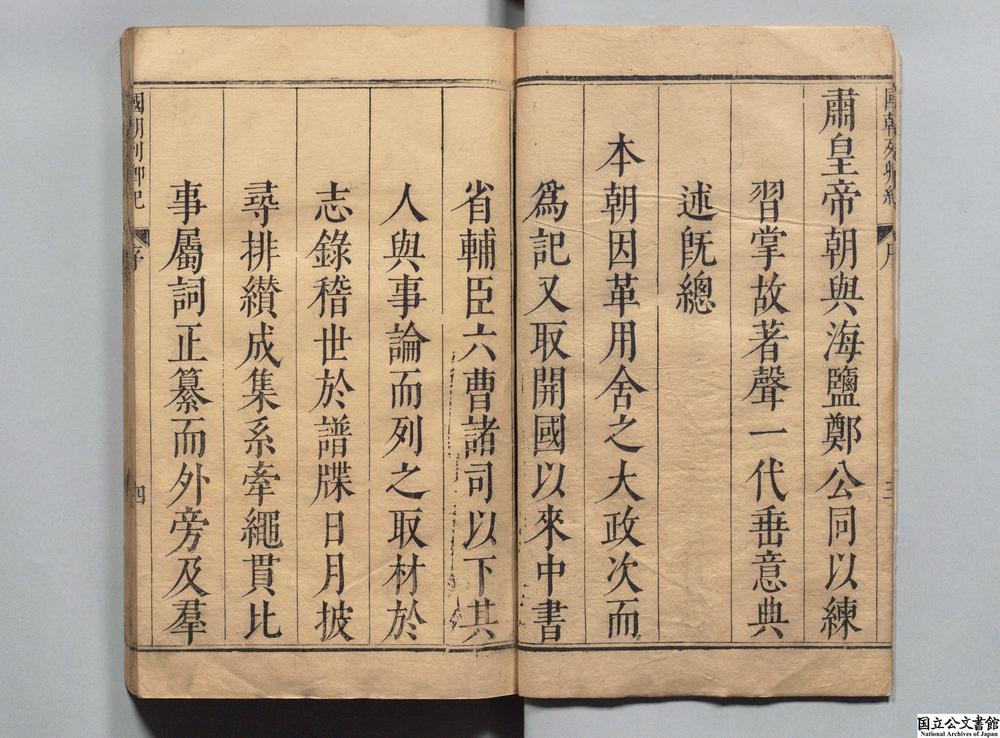 國朝列卿紀
序
三
肅皇帝朝與海鹽鄭公同以練
習掌故著聲一代垂意典
述旣總
本朝因革用舍之大政次而
爲記又取開國以來中書
省輔臣六曹諸司以下其
人與事論而列之取材於
志錄稽世於譜牒日月披
尋排纉成集系牽繩貫比
事屬詞正纂而外旁及羣
國朝列卿紀
序
四
国立公文書館
National Archives of Japan